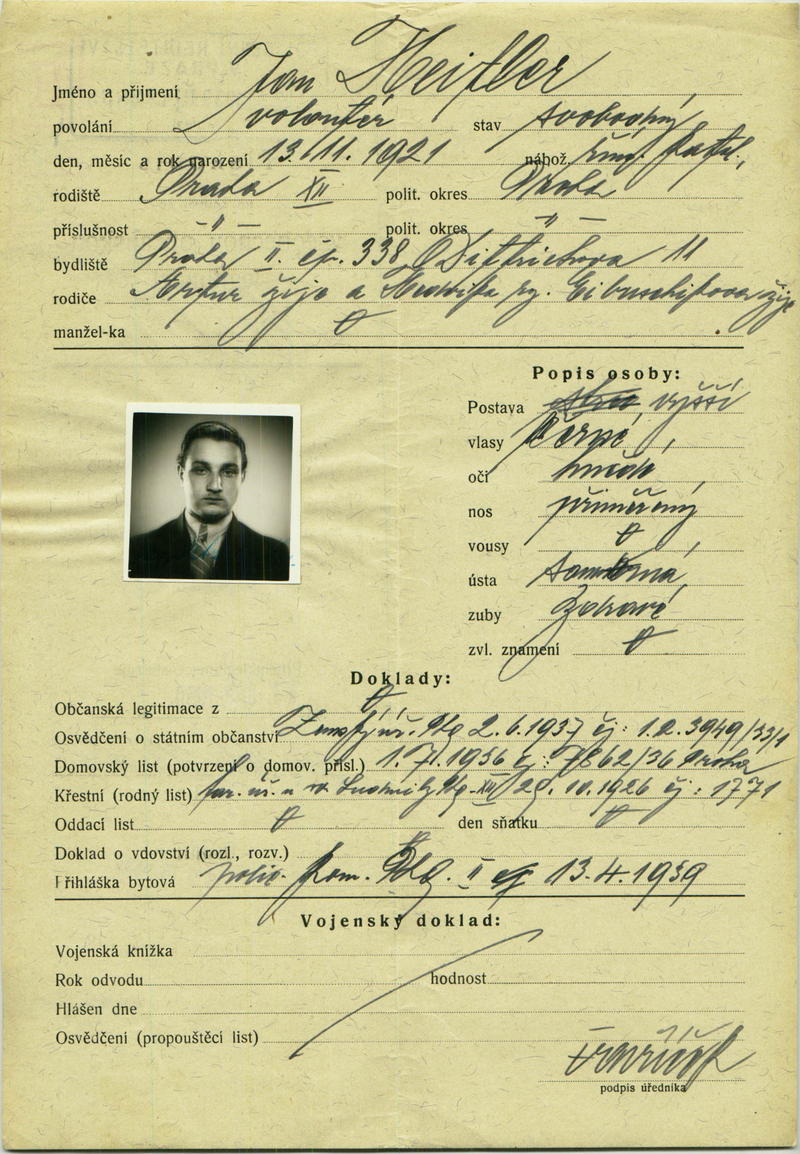 Jméno a přijmení Jan Heitler
povolání volontér stav svobodný
den, měsíc a rok narození 13. 11. 1921 nábož. řím. kat.,
rodiště Praha XII polit. okres Praha
příslušnost –„– polit. okres –„–
bydliště Praha II. čp. 338, Dittrichova 11
rodiče Artur žije a Hedvika žije
manžel-ka
Popis osoby:
Postava vyšší
vlasy černé,
oči hnědé,
nos přiměřený
vousy
ústa souměrná,
zuby zdravé
zvl. znamení
Doklady:
Občanská legitimace z
Osvědčení o státním občanství Zemský úř. Pbg 2. 6. 1937 čj:
Domovský list (potvrzení o domov. přísl.) 1. 7. 1936 čj: 7862/36 Praha
Křestní (rodný list) far. úř. u sv. Ludmily XII 10. 1926 čj: 1771
Oddací list den sňatku
Doklad o vdovství (rozl., rozv.)
Přihláška bytová polic. kom. Pbg. II 13. 4. 1939
Vojenský doklad:
Vojenská knížka
Rok odvodu hodnost
Hlášen dne
Osvědčení (propouštěcí list)
podpis úředníka